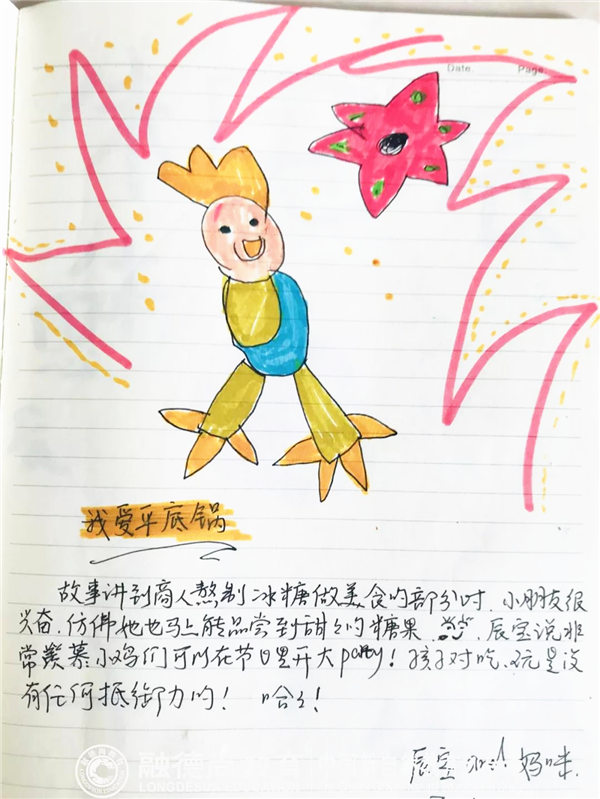 Date.
Page.
我爱平底锅
故事讲到商人熬制冰糖做美食的部分时，小朋友很
兴奋，仿佛她也马上能品尝到甜々的糖果，辰宝说非
常羡慕小鸡们可以在节日里开大party！孩子对吃、玩是没
有任何抵御力的！哈々！
辰宝 妈咪.
融德
LONGDE